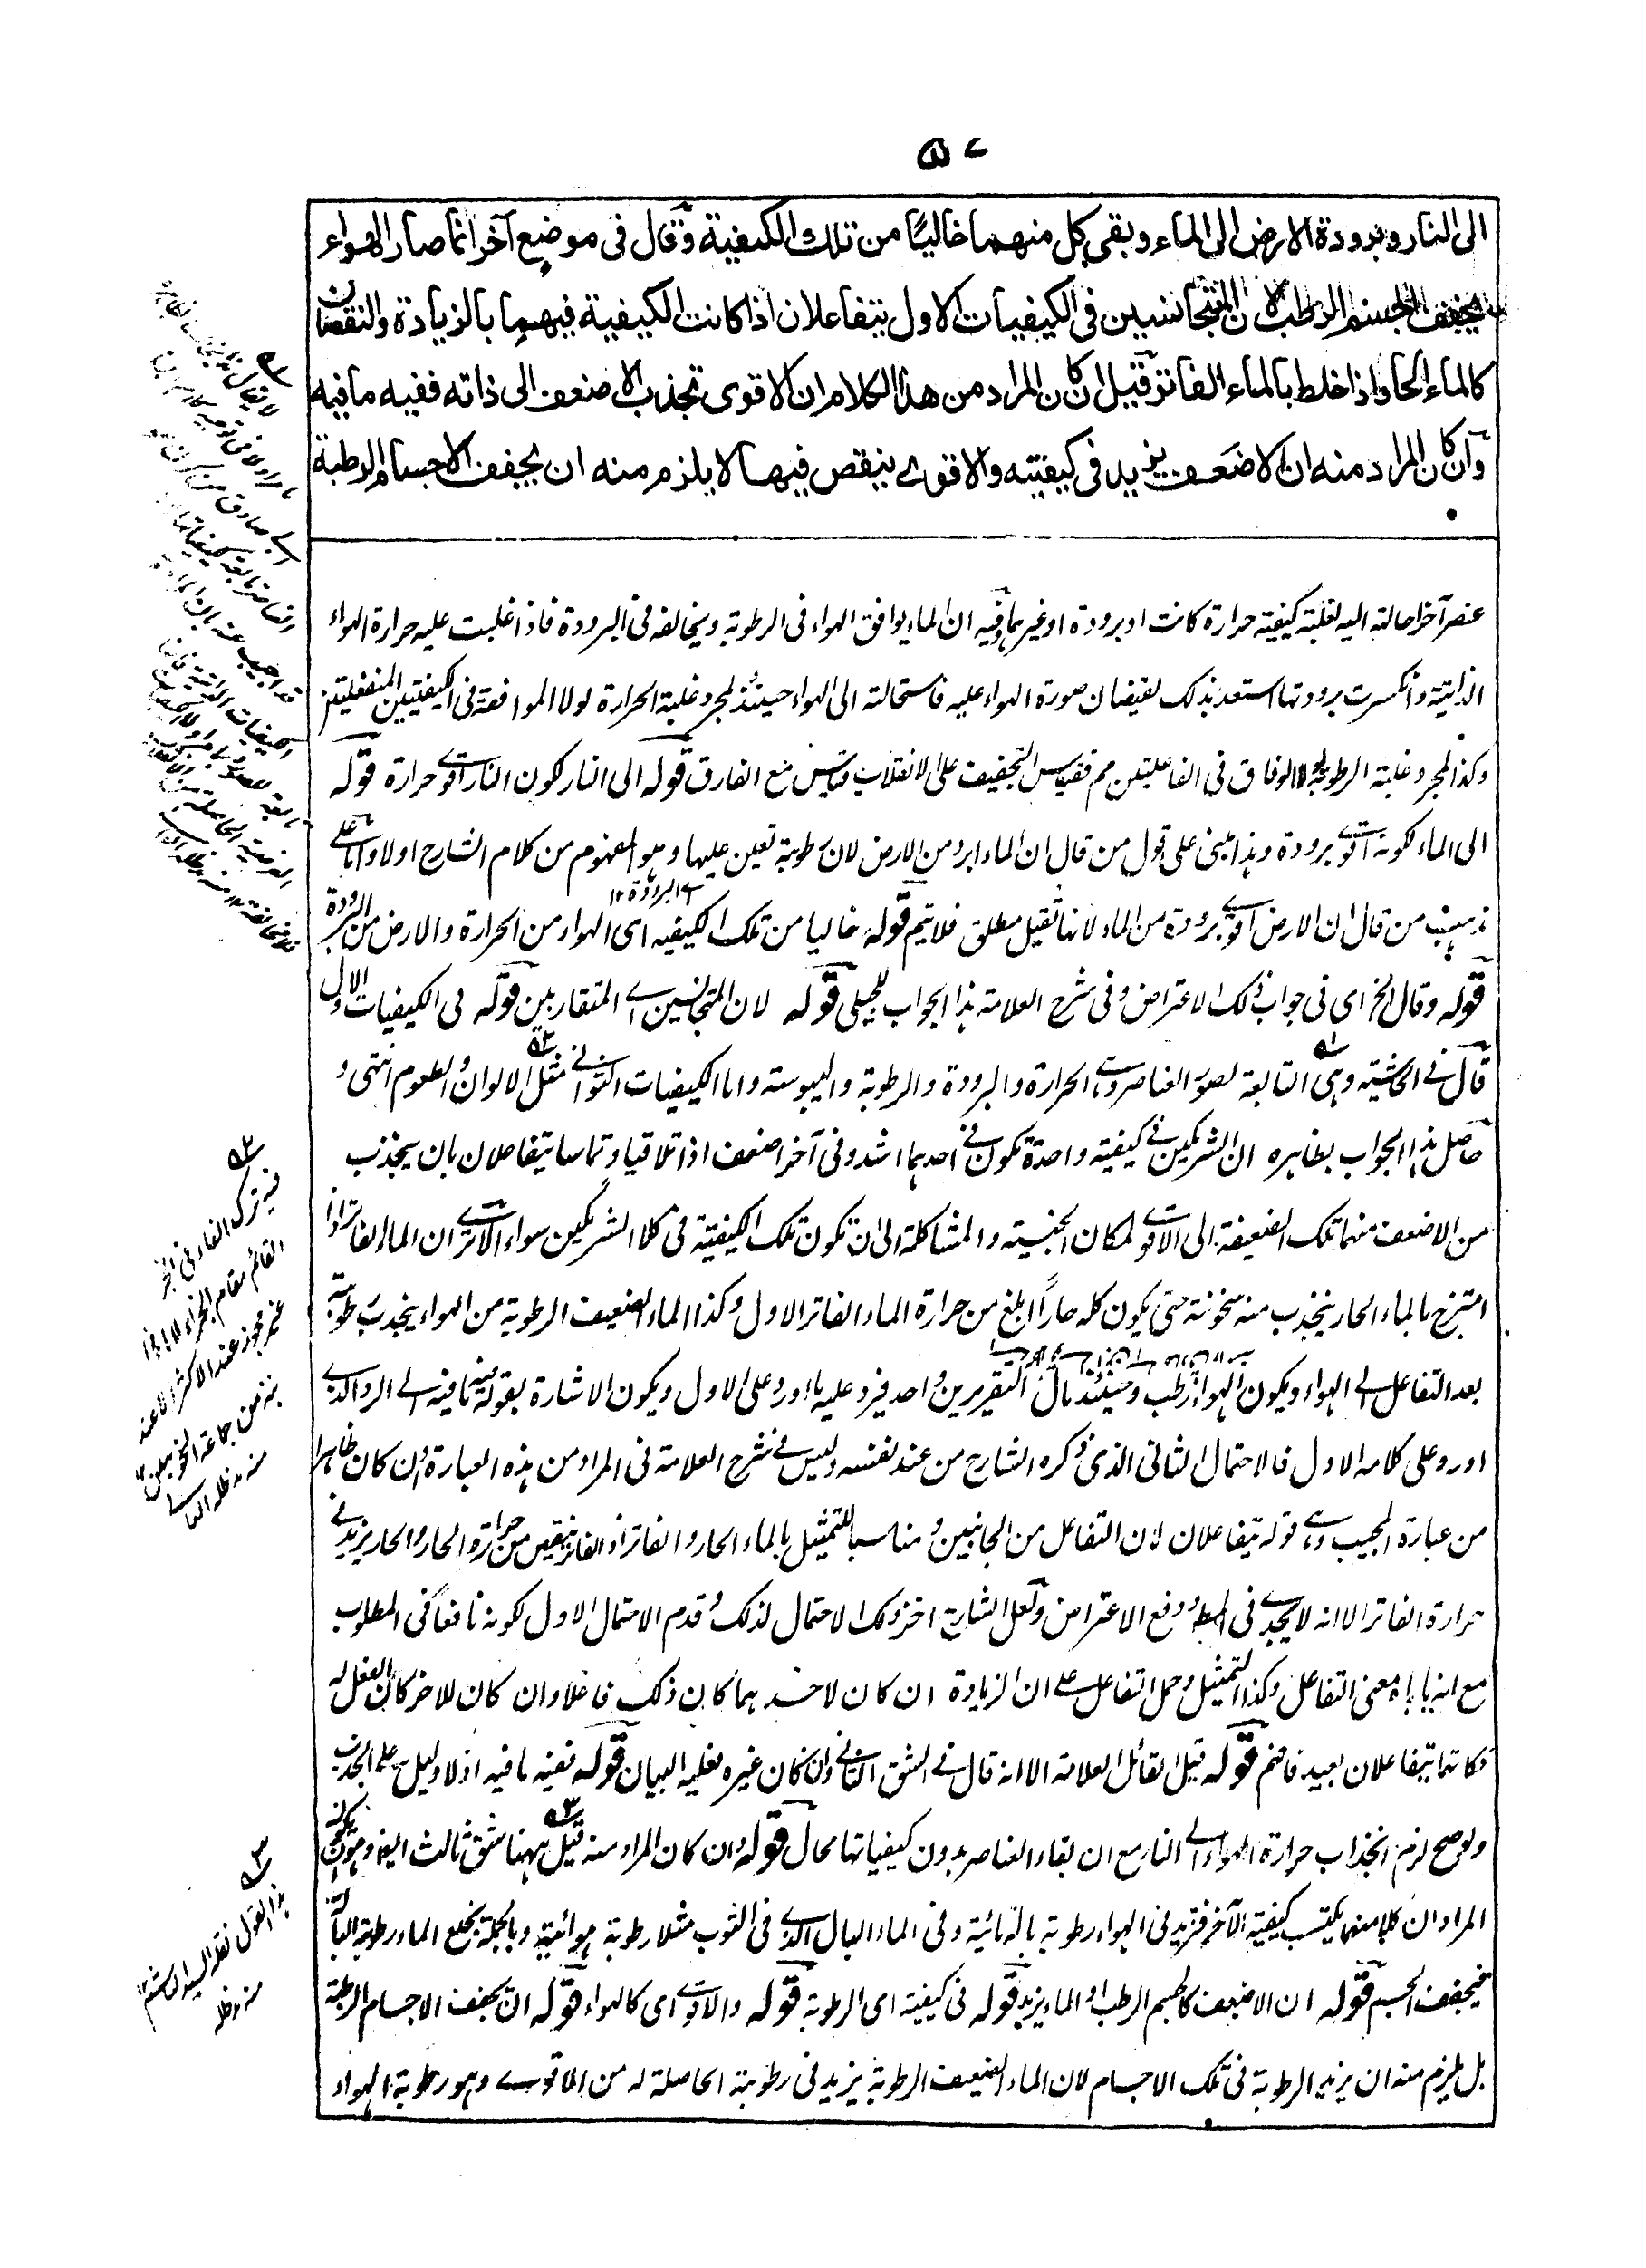 ٥٧
الى النار وبرودة الارض الى الماء وبقى كل منهما خاليًا من تلك الكيفية وقال فى موضع آخر انما صار الهواء
يجفف الجسم الرطب لان المتجانسين فى الكيفيات الاول يتفاعلان اذا كانت الكيفية فيهما بالزيادة والنقصان
كالماء الحار اذا خلط بالماء الفاتر قيل ان كان المراد من هذا الكلام ان الاقوى تجذب الاضعف الى ذاته ففيه ما فيه
وان كان المراد منه ان الاضعف يزيد فى كيفيته والاقوى ينقص فيها لا يلزم منه ان يجفف الاجسام الرطبة
عنصر آخر احالته اليه لغلبة كيفيته حرارة كانت او برودة او غيرهما وفيه ان الماء يوافق الهواء فى الرطوبة ويخالفه فى البرودة فاذا غلبت عليه حرارة الهواء
الذاتية وانكسرت برودتها استعد بذلك لفيضان صورة الهواء عليه فاستحالته الى الهواء حينئذ لمجرد غلبة الحرارة لولا الموافقة فى الكيفيتين المنفعلتين
وكذا لمجرد غلبة الرطوبة لولا الوفاق فى الفاعلتين مم فقياس التجفيف على الانقلاب قياس مع الفارق قوله الى النار لكون النار اقوى حرارة قوله
الى الماء لكونه اقوى برودة وهذا مبنى على قول من قال ان الماء ابرد من الارض لان رطوبته تعين عليها وهو المفهوم من كلام الشارح اولا واما على
مذهب من قال ان الارض اقوى برودة من الماء لانها ثقيل مطلق فلا يتم قوله خاليا من تلك الكيفية اى الهواء من الحرارة والارض من البرودة
اى البرودة ١٢
قوله وقال الخ اى فى جواب ذلك الاعتراض وفى شرح العلامة هذا الجواب للجيلى قوله لان المتجانسين اى المتقاربين قوله فى الكيفيات الاول
قال فى الحاشية وهى التابعة لصور العناصر وهى الحرارة والبرودة والرطوبة واليبوسة واما الكيفيات الثوانى مثل الالوان والطعوم انتهى و
حاصل هذا الجواب بظاهره ان الشريكين فى كيفية واحدة تكون فى احدهما اشد وفى آخر اضعف اذا تلاقيا وتماسا يتفاعلان بان ينجذب
من الاضعف منهما تلك الضعيفة الى الاقوى لمكان الجنسية والمشاكلة الى ان تكون تلك الكيفية فى كلا الشريكين سواء الا ترى ان الماء الفاتر اذا
امتزج بالماء الحار ينجذب منه سخونة حتى يكون كله حارًا ابلغ من حرارة الماء الفاتر الاول وكذا الماء الضعيف الرطوبة من الهواء ينجذب رطوبته
بعد التفاعل الى الهواء ويكون الهواء ارطب وحينئذ مآل التقريرين واحد فيرد عليه ما اورد على الاول ويكون الاشارة بقوله ففيه ما فيه الى الرد الذى
اورد على كلامه الاول فالاحتمال الثانى الذى ذكره الشارح من عند نفسه وليس فى شرح العلامة فى المراد من هذه العبارة وان كان ظاهرا
من عبارة المجيب وهى قوله يتفاعلان لان التفاعل من الجانبين ومناسبا للتمثيل بالماء الحار والفاتر اذ الفاتر ينقص من حرارة الحار والحار يزيد فى
حرارة الفاتر الا انه لا يجدى فى المط ودفع الاعتراض ولعل الشارح اخر ذلك الاحتمال لذلك وقدم الاحتمال الاول لكونه نافعاً فى المطلوب
مع انه يأباه معنى التفاعل وكذا التمثيل وحمل التفاعل على ان الزيادة ان كان لاحدهما كان ذلك فاعلا وان كان للآخر كان الفعل له
فكانهما يتفاعلان بعيد فافهم قوله قيل القائل العلامة الا انه قال فى الشق الثانى وان كان غيره فعليه البيان قوله ففيه ما فيه اذ لا دليل على الجذب
ولو صح لزم انجذاب حرارة الهواء الى النار مع ان بقاء العناصر بدون كيفياتها محال قوله وان كان المراد منه قيل ههنا شق ثالث ايضا وهو ان يكون
المراد ان كلا منهما يكتسب كيفية الآخر فتزيد فى الهواء رطوبة بالة مائية وفى الماء البال الذى فى الثوب مثلا رطوبة هوائية وبالجملة يخلع الماء رطوبة البالة
فيجفف الجسم قوله ان الاضعف كالجسم الرطب او الماء يزيد قوله فى كيفيته اى الرطوبة قوله والاقوى اى كالهواء قوله ان يجفف الاجسام الرطبة
بل يلزم منه ان يزيد الرطوبة فى تلك الاجسام لان الماء الضعيف الرطوبة يزيد فى رطوبته الحاصلة له من الاقوى وهو رطوبة الهواء
فيه ترك الفاء فى الخبر
القائم مقام الجزاء
غير مجوز عند الاكثر الا عند
جماعة النحويين
منه مد ظله العالى
هذا القول نقله السيد الهاشم
منه مد ظله